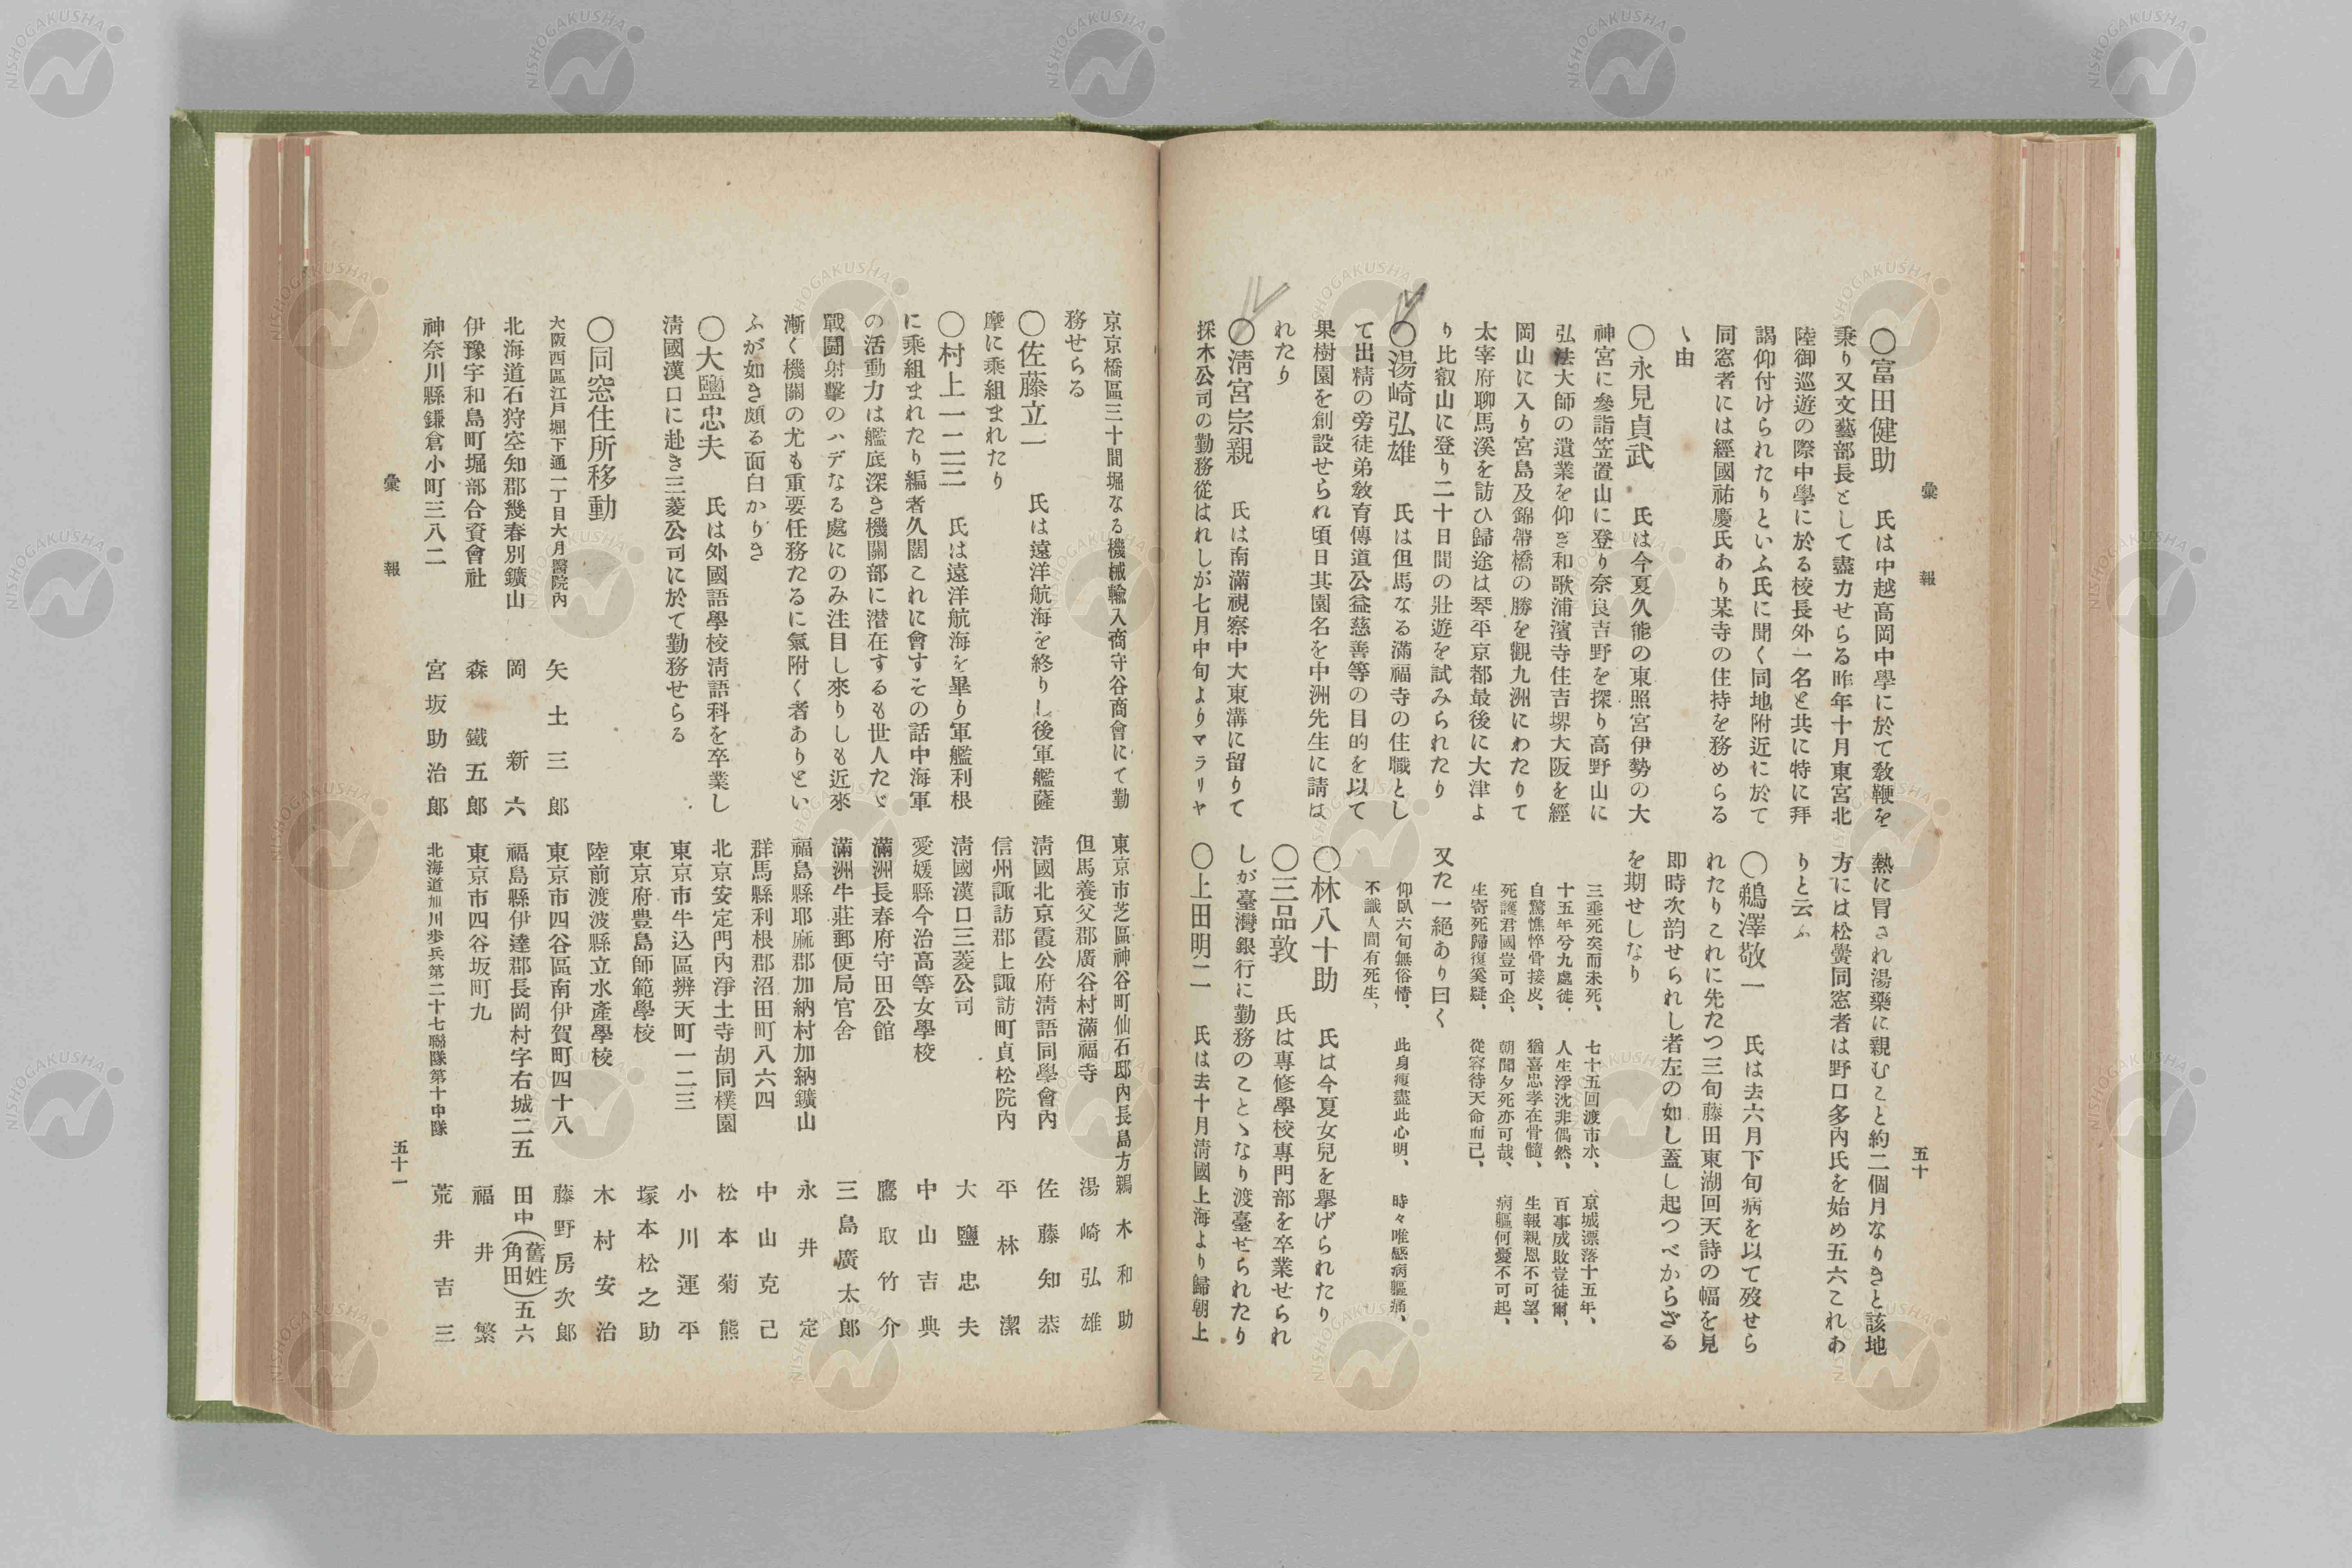 彙報
五十
〇富田健助　氏は中越高岡中學に於て敎鞭を
乗り又文藝部長として盡力せらる昨年十月東宮北
陸御巡遊の際中學に於る校長外一名と共に特に拜
謁仰付けられたりといふ氏に聞く同地附近に於て
同窓者には經國祐慶氏あり某寺の住持を務めらる
ゝ由
〇永見貞武　氏は今夏久能の東照宮伊勢の大
神宮に參詣笠置山に登り奈良吉野を探り高野山に
弘法大師の遺業を仰ぎ和歌浦濱寺住吉堺大阪を經
岡山に入り宮島及錦帶橋の勝を觀九洲にわたりて
太宰府聊馬溪を訪ひ歸途は琴平京都最後に大津よ
り比叡山に登り二十日間の壯遊を試みられたり
〇湯崎弘雄　氏は但馬なる滿福寺の住職とし
て出精の旁徒弟敎育傳道公益慈善等の目的を以て
果樹園を創設せられ頃日其園名を中洲先生に請は
れたり
〇淸宮宗親　氏は南滿視察中大東溝に留りて
採木公司の勤務從はれしが七月中旬よりマラリヤ
熱に冒され湯藥に親むこと約二個月なりきと該地
方には松黌同窓者は野口多內氏を始め五六これあ
りと云ふ
〇鵜澤敬一　氏は去六月下旬病を以て歿せら
れたりこれに先たつ三旬藤田東湖回天詩の幅を見
即時次韵せられし者左の如し蓋し起つべからざる
を期せしなり
三垂死突而未死、　七十五回渡市水、　京城漂落十五年、
十五年兮九處徙、　人生浮沈非偶然、　百事成敗豈徒爾、
自驚憔悴骨接皮、　猶喜忠孝在骨髓、　生報親恩不可望、
死護君國豈可企、　朝聞夕死亦可哉、　病軀何憂不可起、
生寄死歸復奚疑、　從容待天命而已、
又た一絕あり曰く
仰臥六旬無俗情、　此身瘦盡此心明、　時々唯感病軀痛、
不識人間有死生、
〇林八十助　氏は今夏女兒を擧げられたり
〇三品敦　氏は專修學校專門部を卒業せられ
しが臺灣銀行に勤務のことゝなり渡臺せられたり
〇上田明二　氏は去十月淸國上海より歸朝上
京京橋區三十間堀なる機械輸入商守谷商會にて勤
務せらる
〇佐藤立一　氏は遠洋航海を終りし後軍艦薩
摩に乘組まれたり
〇村上一二三　氏は遠洋航海を畢り軍艦利根
に乘組まれたり編者久闊これに會すその話中海軍
の活動力は艦底深き機關部に潜在するも世人たゞ
戰鬪射擊のハデなる處にのみ注目し來りしも近來
漸く機關の尤も重要任務たるに氣附く者ありとい
ふが如き頗る面白かりき
〇大鹽忠夫　氏は外國語學校淸語科を卒業し
淸國漢口に赴き三菱公司に於て勤務せらる
〇同窓住所移動
大阪西區江戸堀下通一丁目大月醫院內　矢土三郎
北海道石狩空知郡幾春別鑛山　岡新六
伊豫宇和島町堀部合資會社　森鐵五郎
神奈川縣鎌倉小町三八二　宮坂助治郎
東京市芝區神谷町仙石邸內長島方　鵜木和助
但馬養父郡廣谷村滿福寺　湯崎弘雄
淸國北京霞公府淸語同學會內　佐藤知恭
信州諏訪郡上諏訪町貞松院內　平林潔
淸國漢口三菱公司　大鹽忠夫
愛媛縣今治高等女學校　中山吉典
滿洲長春府守田公館　鷹取竹介
滿洲牛莊郵便局官舍　三島廣太郎
福島縣耶麻郡加納村加納鑛山　永井定
群馬縣利根郡沼田町八六四　中山克己
北京安定門內淨土寺胡同樸園　松本菊熊
東京市牛込區辨天町一二三　小川運平
東京府豊島師範學校　塚本松之助
陸前渡波縣立水產學校　木村安治
東京市四谷區南伊賀町四十八　藤野房次郎
福島縣伊達郡長岡村字右城二五　田中（舊姓角田）五六
東京市四谷坂町九　福井繁
北海道旭川步兵第二十七聯隊第十中隊　荒井吉三
彙報
五十一
NISHOGAKUSHA